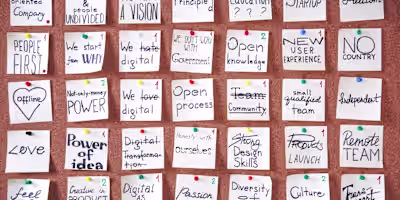 oriented
Company
people
undivided
A VISION
Principle
EDUCATION
? ? ?
STARTUP
PEOPLE
FIRST
We start
from WHY
We hate
digital
WE DON'T WORK
WITH
Government
Open
knowledge
NEW
USER
EXPERIENCE
NO
COUNTRY
offline
Not-only-money
POWER
We love
digital
Open
process
Team
Community
small
qualified
Team
Independent
Love
Power
of idea
Digital
Transforma-
tion
Honesty with
ourselves
Strong
Design
Skills
Product
LAUNCH
Remote
TEAM
feel
Creative
PRODUCT
Digital
Passion
Diversity
of
Culture